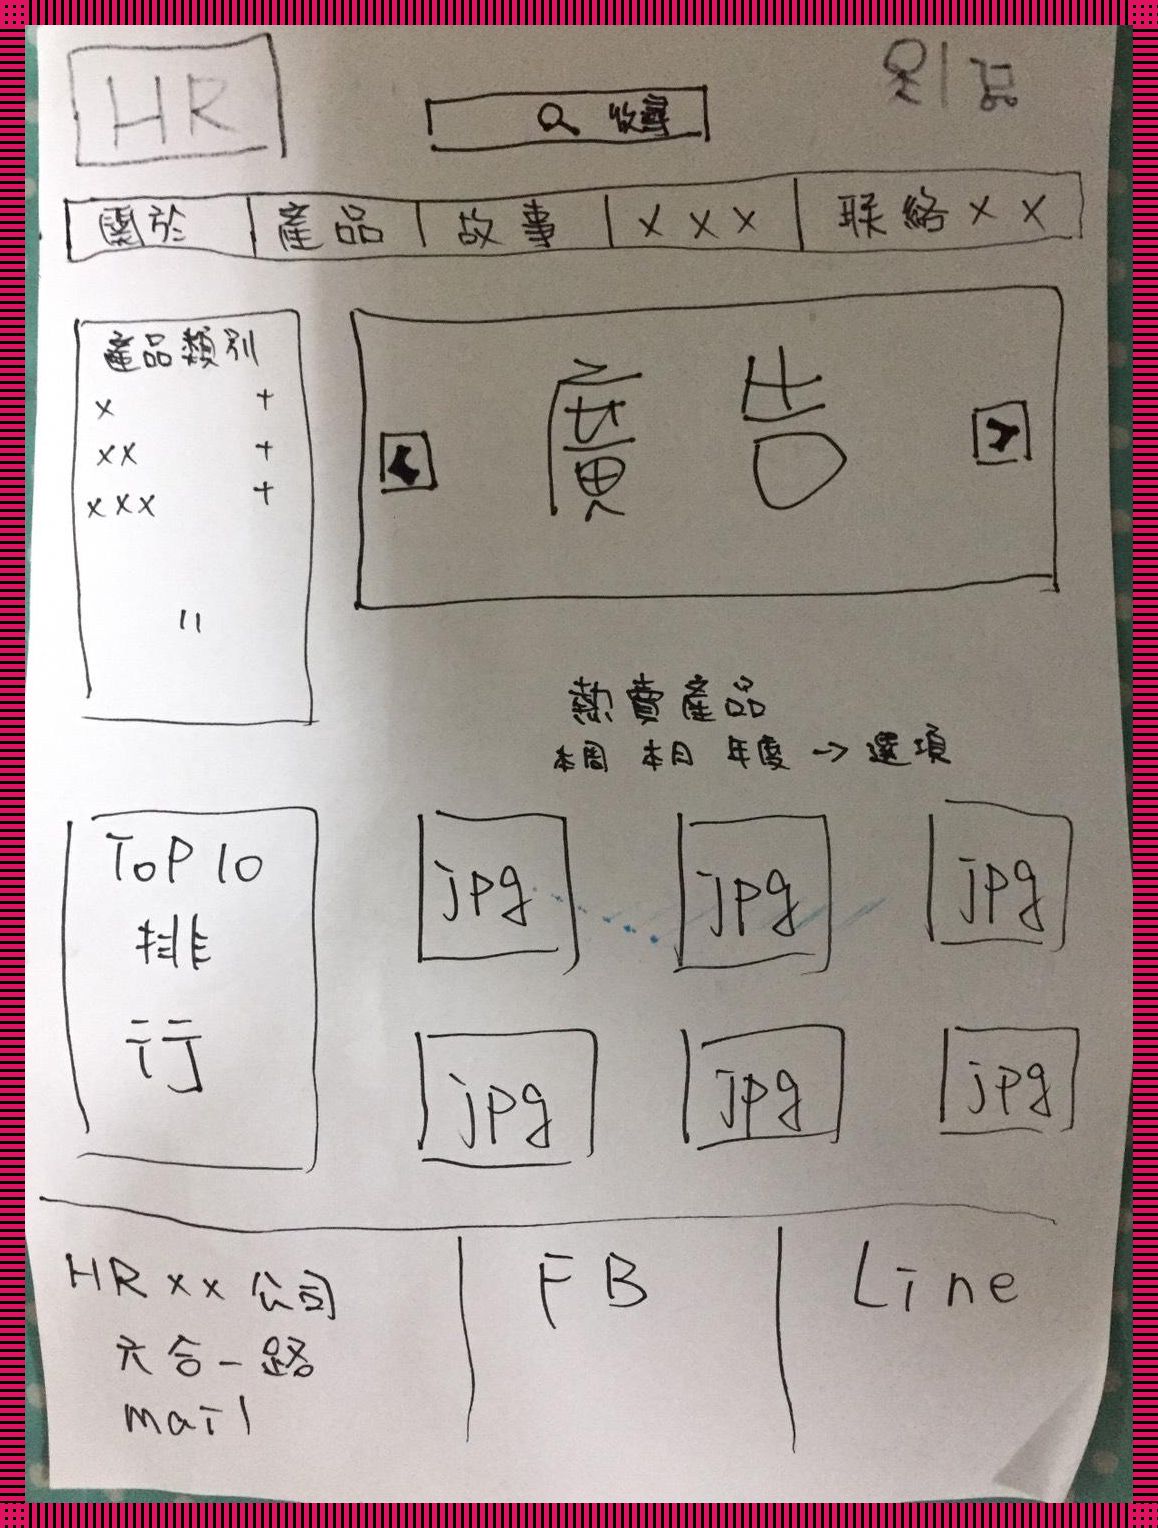 HR
收尋
關於 產品 故事 x x x 联絡 x x
產品類別
x +
xx +
xxx +
廣告
熱賣產品
本周 本月 年度 → 選項
TOP 10
排
行
jpg jpg jpg
jpg jpg jpg
HR xx 公司
六合一路
mail
FB
Line